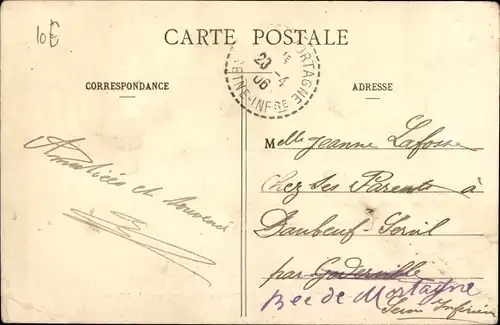 10€
CARTE POSTALE
CORRESPONDANCE
ADRESSE
MORTAGNE
20 -4
06
SEINE-INFRE
Amitiés et souvenir
Melle Jeanne Lafosse
chez ses Parents à
Daubeuf-Serville
par Goderville
Bec de Mortagne
Seine Inférieure